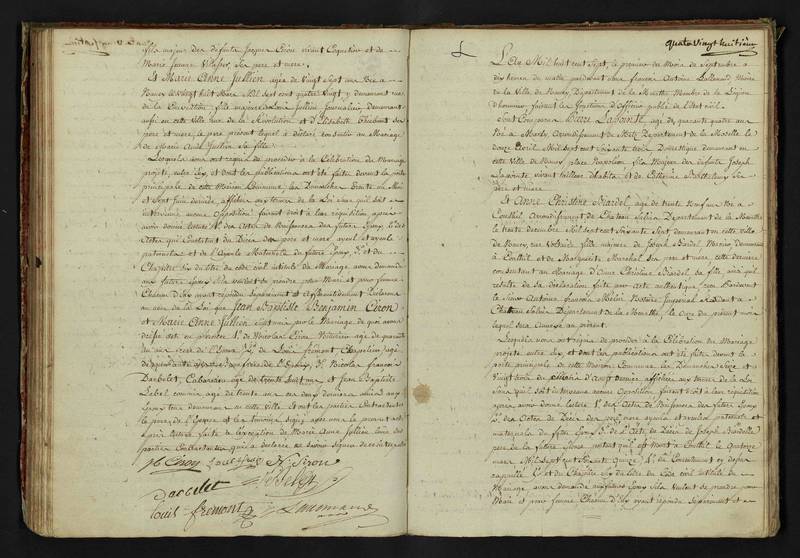 fils majeur des defunts Jacques Ciron vivant Coquetier et de
Marie Jeanne ses pere et mere.
Et Marie Anne Jullien agée de Vingt Sept ans Née a
Nancy le Vingt huit Mars Mil Sept cent quatre Vingt y demeurant rue
de la Constitution fille majeure de Louis Jullien Journalier demeurant
aussi en cette Ville rue de la Révolution et d'Elisabeth Thiebaut ses
pere et mere, le pere présent lequel a déclaré consentir au Mariage
de Marie Anne Jullien sa fille.
Lesquels nous ont requis de procéder à la Célébration du Mariage
projetté entre eux, et dont les publications ont été faites devant la porte
principale de cette Maison Commune les Dimanches trente un Mai
et Sept Juin dernier, affichées au terme de la Loi sans qu'il soit
intervenu aucune Opposition, faisant droit à leur réquisition, après
avoir donné lecture des Actes de Naissances des futurs Epoux,
Actes qui constatent du Décès des pere et mere, ayeul et ayeule
paternels et de l'Ayeule Maternelle du futur Epoux, et du
Chapitre Six du titre du code civil intitulé du Mariage avons demandé
aux futurs Epoux s'ils veulent se prendre pour Mari et pour femme
Chacun d'Eux ayant répondu Séparément et Affirmativement Declarons
au nom de la Loi que Jean Baptiste Benjamin Ciron
et Marie Anne Jullien sont unis par le Mariage de quoi avons
dressé acte en présence de Nicolas Ciron Voiturier agé de quarante
ans frere de l'Epoux, de Louis frémont Chapelier agé
de Nicolas François
Darbelet, Cabaretier agé de trente huit ans et Jean Baptiste
Lebel commis, agé de trente ans ces deux derniers amis des
Epoux tous demeurant en cette Ville. Et ont les parties Contractantes
le pere de l'Epouse et les témoins signé avec nous le présent acte
après lecture faite à l'exception de Marie Anne Jullien l'une des
parties Contractantes qui a déclaré ne savoir signer de ce interpellée
Ciron N. Ciron
Darbelet Lebel
louis fremont Lallemand
Quatre Vingt huitième
L'An Mil huit cent Sept, le premier du Mois de Septembre a
dix heures du matin pardevant Nous françois Antoine Lallemand Maire
de la Ville de Nancy, Département de la Meurthe Membre de la Légion
d'honneur, faisant les fonctions d'Officier public de l'Etat civil.
Sont Comparus Pierre Lapointe, agé de quarante quatre ans
Né a Mardy, Arrondissement de Metz Departement de la Moselle le
douze Avril Mil Sept cent Soixante trois Domestique demeurant en
cette Ville de Nancy place Napoléon fils Majeur des defunts Joseph
Lapointe vivant tailleur d'habits et de Catherine Barthelemy ses
père et mere.
Et Anne Christine Bardel, agée de trente Neuf ans Née a
Conthil, Arrondissement de Chateau Salins Département de la Meurthe
le trente decembre Mil Sept cent Soixante Sept, demeurant en cette ville
de Nancy, rue fille majeure de Joseph Bardel demeurant
à Conthil et de Marguerite Marchal ses pere et mere, cette derniere
consentant au Mariage d'Anne Christine Bardel sa fille, ainsi qu'il
resulte de sa Declaration faite par acte authentique, reçu pardevant
le Sieur Antoine françois Notaire Imperial résidant a
Chateau Salins Departement de la Meurthe, le onze du present mois
lequel sera annexé au present.
Lesquels nous ont requis de procéder à la Célébration du Mariage
projetté entre eux, et dont les publications ont été faites devant la
porte principale de cette Maison Commune les Dimanches Seize et
Vingt trois du Mois d'Aout dernier affichées aux termes de la Loi
sans qu'il soit intervenu aucune Opposition, faisant droit à leur réquisition
après avoir donné lecture des Actes de Naissances des futurs Epoux,
des Actes de Décès des pere, mere, ayeuls et ayeules paternels et
maternels du futur Epoux de l'Acte de Décès de Joseph Bardel
pere de la future Epouse portant qu'il est mort à Conthil le Quatorze
mars Mil Sept cent Quatre Vingt Quinze, du Consentement ci dessus
rappellé, et du Chapitre Six du titre du Code civil intitulé du
Mariage, avons demandé aux futurs Epoux s'ils veulent se prendre pour
Mari et pour femme Chacun d'Eux ayant répondu Séparément et